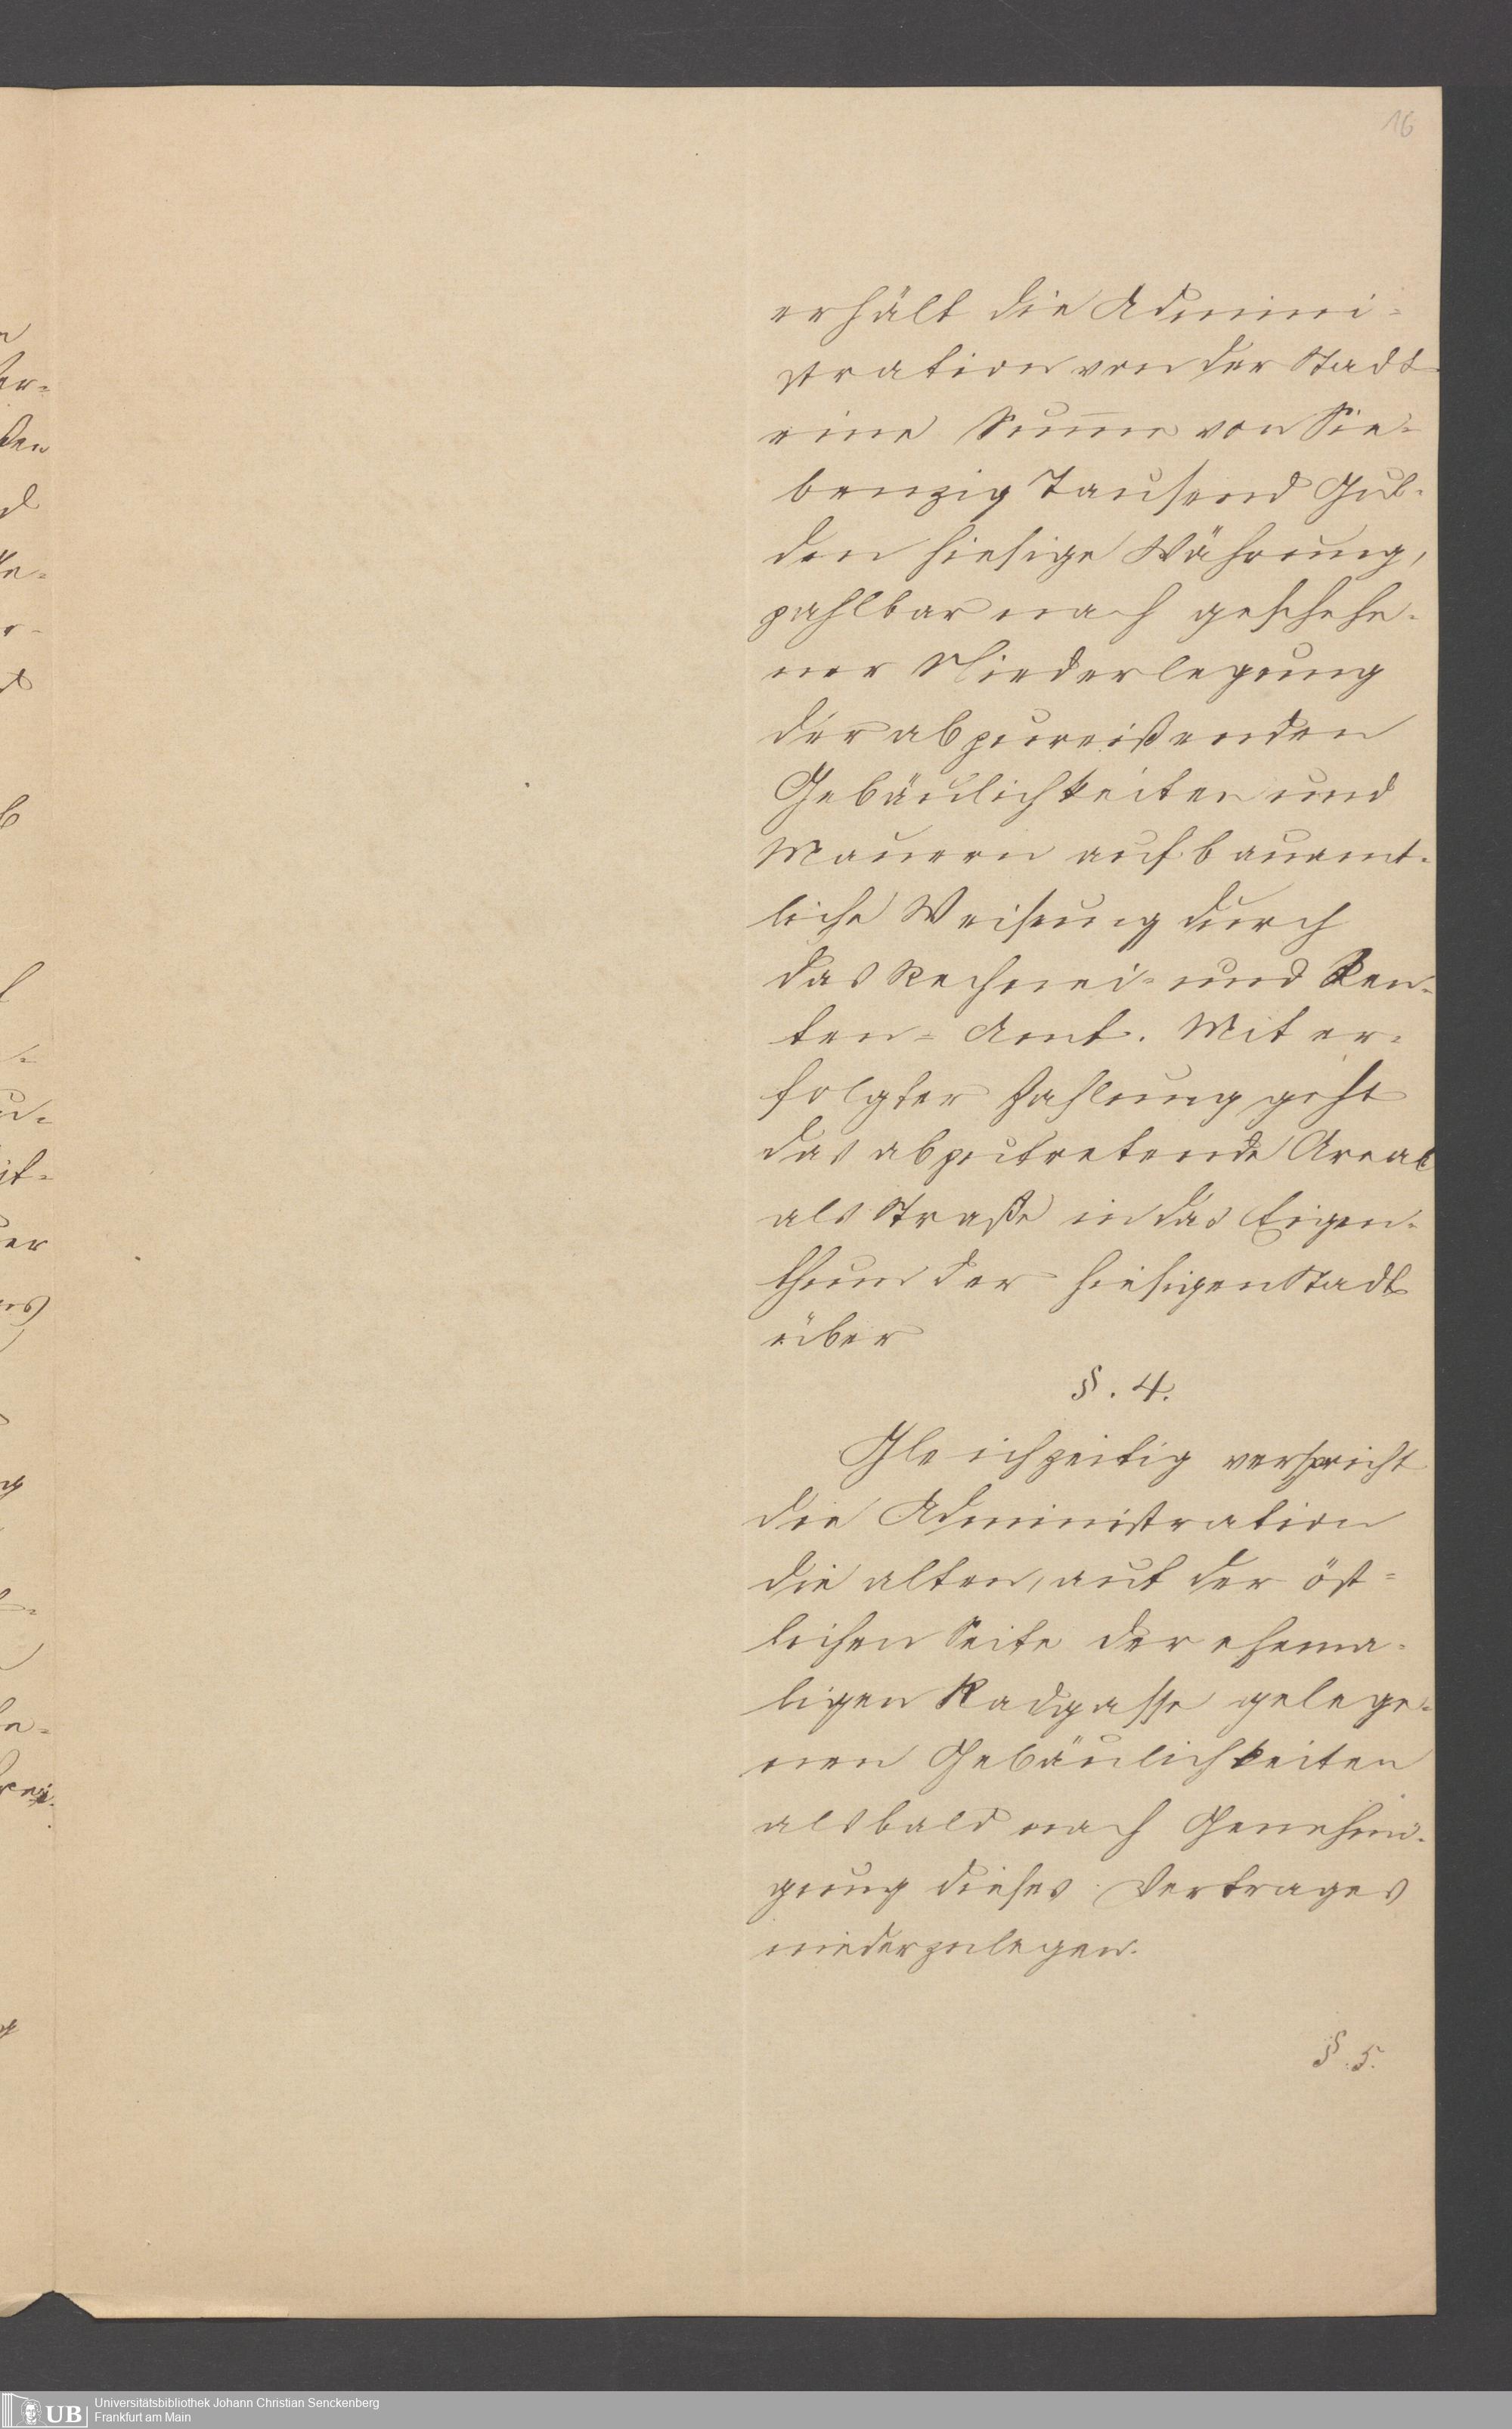 16
erhält die Admini-
stration von der Stadt
eine Sum̅e von Sie-
benzig Tausend Gul-
den hiesige Währung,
zahlbar nach geschehe-
ner Niederlegung
der abzureißenden
Gebäulichkeiten und
Mauern auf bauamt-
liche Weisung durch
das Rechnei- und Ren-
ten- Amt. Mit er-
folgter Zahlung geht
das abzutretende Areal
als Straße in das Eigen-
thum der hiesigen Stadt
über
§. 4.
Gleichzeitig verspricht
die Administration
die alten, auf der öst-
lichen Seite der ehema-
ligen Radgasse gelege-
nen Gebäulichkeiten
alsbald nach Genehmi-
gung dieses Vertrages
niederzulegen.
§. 5.
UB Universitätsbibliothek Johann Christian Senckenberg
Frankfurt am Main